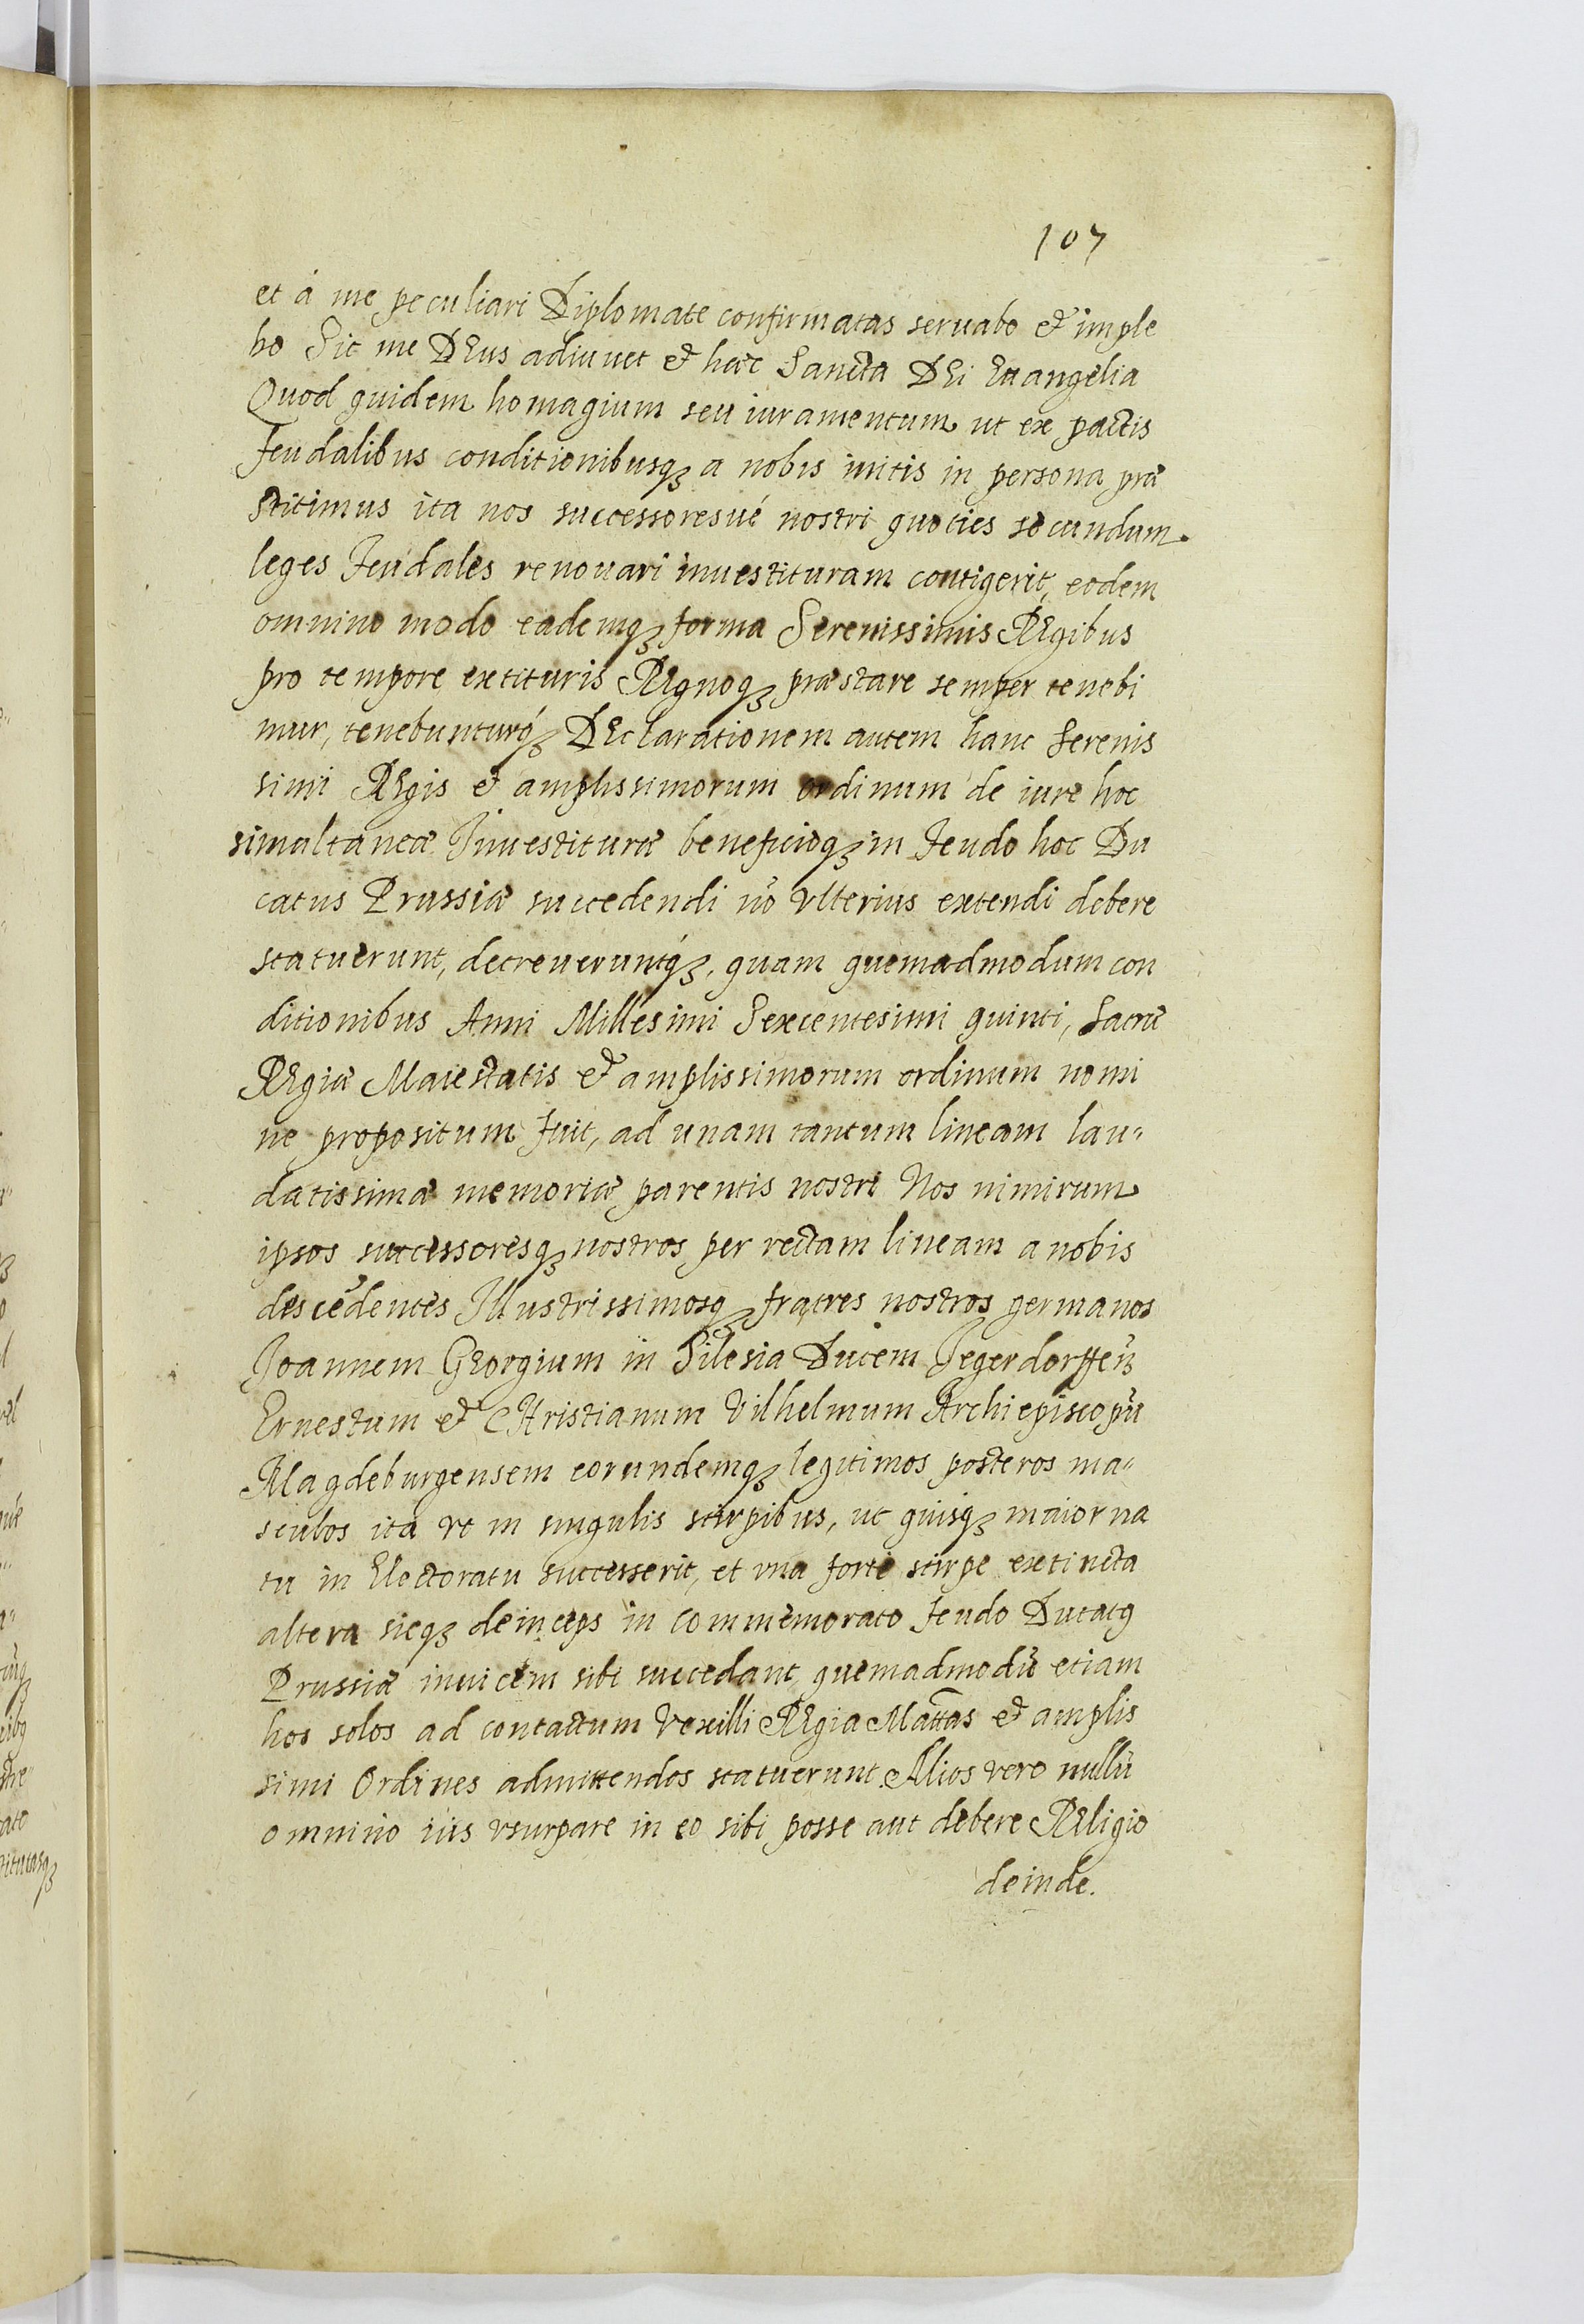 107
et á me peculiari Diplomate confirmatas seruabo et imple
bo Sic me DEus adiuuet et hæc Sancta DEi Euangelia
Quod quidem homagium seu iuramentum ut ex pactis
feudalibus conditionibusqꝫ a nobis initis in persona præ
stitimus ita nos successoresué nostri quoties secundum
leges feudales renouari inuestituram contigerit, eodem
omnino modo eademqꝫ forma Serenissimis REgibus
pro tempore extituris REgnoqꝫ præstare semper tenebi
mur, tenebunturqꝫ́ DEclarationem autem hanc Serenis
simi REgis et amplissimorum ordinum de iure hoc
simultaneæ Inuestituræ beneficioqꝫ in feudo hoc Du
catus Prussiæ succedendi nō vlterius extendi debere
statuerunt, decreueruntqꝫ́, quam quemadmodum con
ditionibus Anni Millesimi Sexcentesimi quinti, Sacræ
REgiæ Maiestatis et amplissimorum ordinum nomi
ne propositum fuit, ad unam tantum lineam lau-
datissimæ memoriæ parentis nostri Nos nimirum
ipsos successoresqꝫ nostros per rectam lineam a nobis
descēdentes Illustrissimosqꝫ fratres nostros germanos
Joannem GEorgium in Silesia Ducem Jegerdorffeñ
Ernestum et CHristianum Vilhelmum Archiepiscopū
Magdeburgensem eorundemqꝫ legitimos posteros ma-
sculos ita vt in singulis stirpibus, ut quisqꝫ maior na
tu in Electoratu successerit, et vna forte stirpe extincta
altera sicqꝫ deinceps in commemorato feudo Ducatꝗ
Prussiæ inuicem sibi succedant, quemadmodū etiam
hos solos ad contactum Vexilli REgia Mattas et amplis
simi Ordines admittendos statuerunt. Alios vero nullū
omnino iùs vsurpare in eo sibi posse aut debere REligio
deinde.